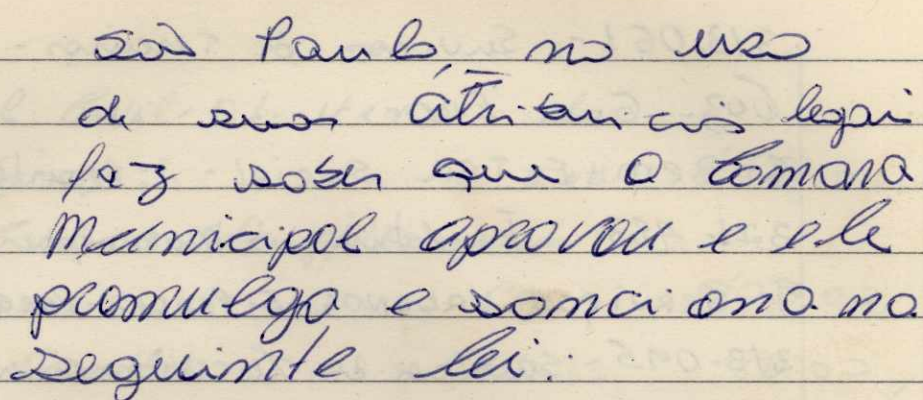 São Paulo, no uso
de suas atribuicões legai
faz saber que a Camara
Municipal aprovou e ele
promulga e sanciona na
seguinte lei: